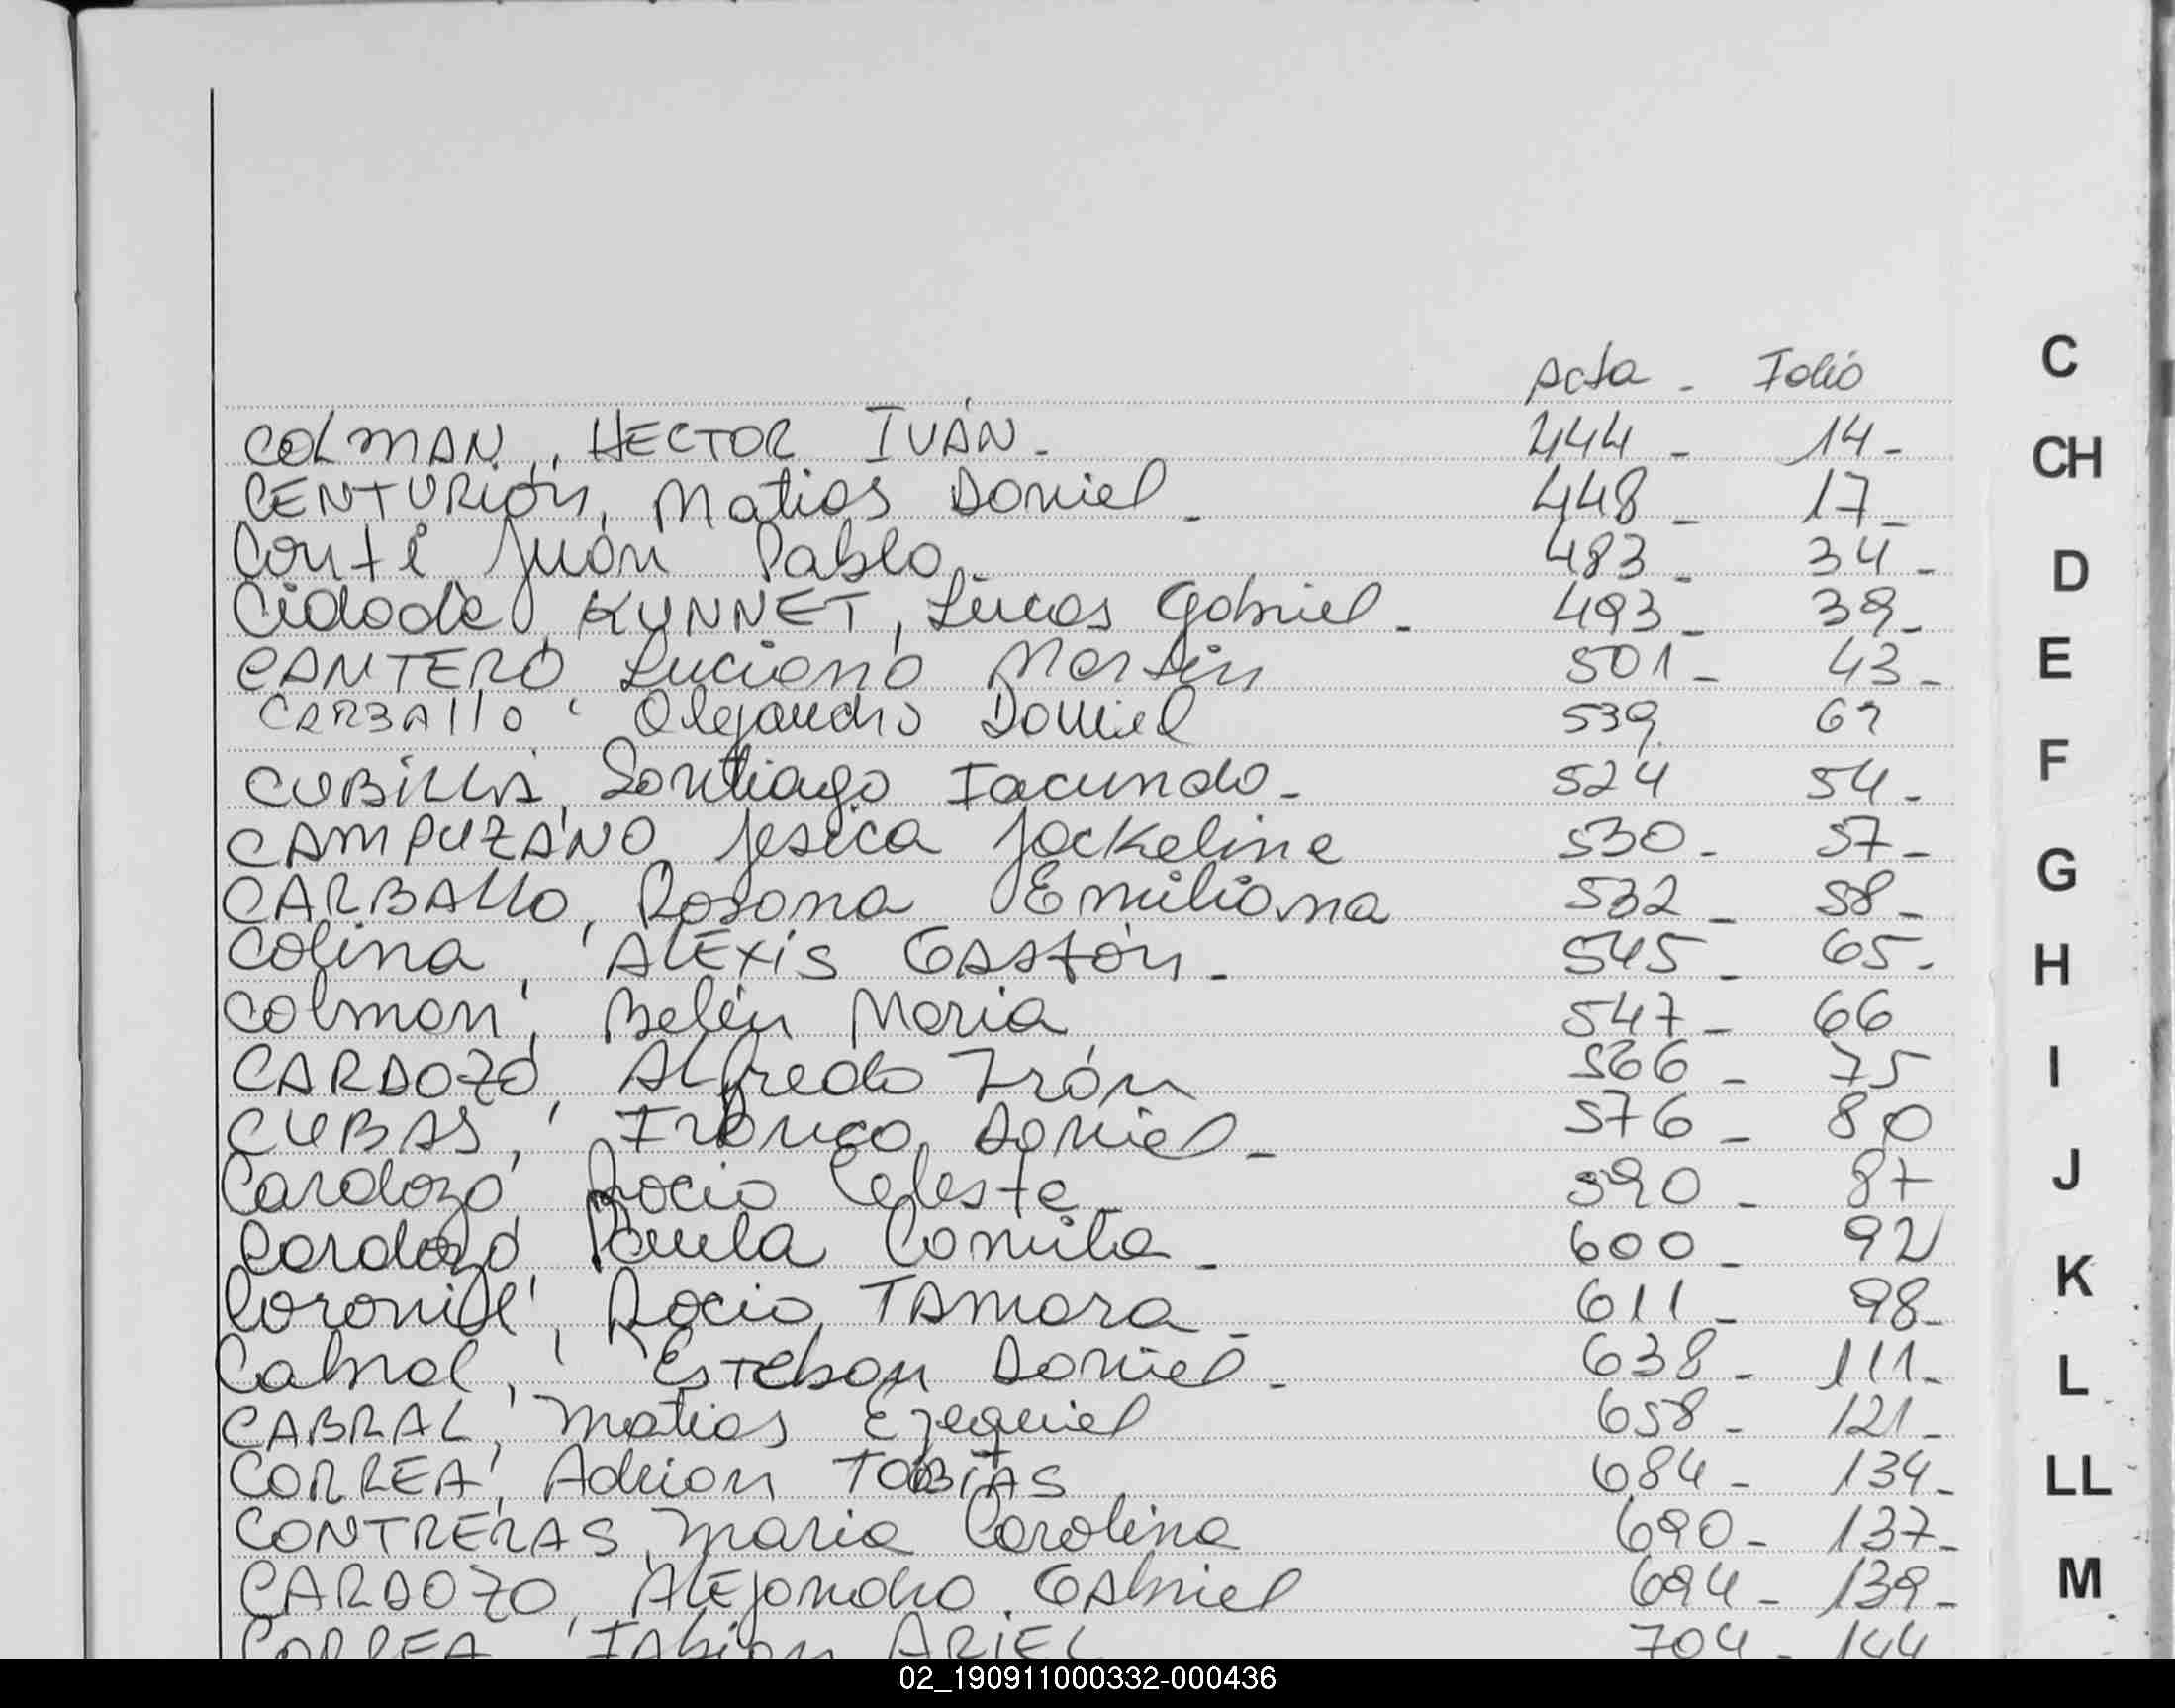 Acta - Folio
COLMAN, HECTOR IVÁN - 444 - 14 -
CENTURIÓN, Matias Daniel - 448 - 17 -
Conti Juan Pablo - 483 - 34 -
Cidade KUNNET, Lucas Gabriel - 493 - 39 -
CANTERO, Luciano Martin 501 - 43 -
CARBALLO, Alejandro Daniel 539 62
CUBILLA, Santiago Facundo - 524 54 -
CAMPUZANO, Jesica Jackeline 530 - 57 -
CARBALLO, Rosana Emiliana 532 - 58 -
Colina, ALEXIS GASTÓN - 545 - 65 -
Colman, Belén Maria 547 - 66
CARDOZO, Alfredo Iván 566 - 75
CUBAS, Franco Daniel - 576 - 80
Cardozo, Rocio Celeste - 590 - 87
Cardozo, Paula Camila - 600 - 92
Coronil, Rocio TAMARA - 611 - 98 -
Cabral, ESTEBAN Daniel - 638 - 111 -
CABRAL, Matias Ezequiel 658 - 121 -
CORREA, Adrian TOBIAS 684 - 134 -
CONTRERAS, Maria Carolina 690 - 137 -
CARDOZO, ALEJANDRO GABRIEL 694 - 139 -
CORREA, FABIAN ARIEL 704 - 144
C
CH
D
E
F
G
H
I
J
K
L
LL
M
02_190911000332-000436